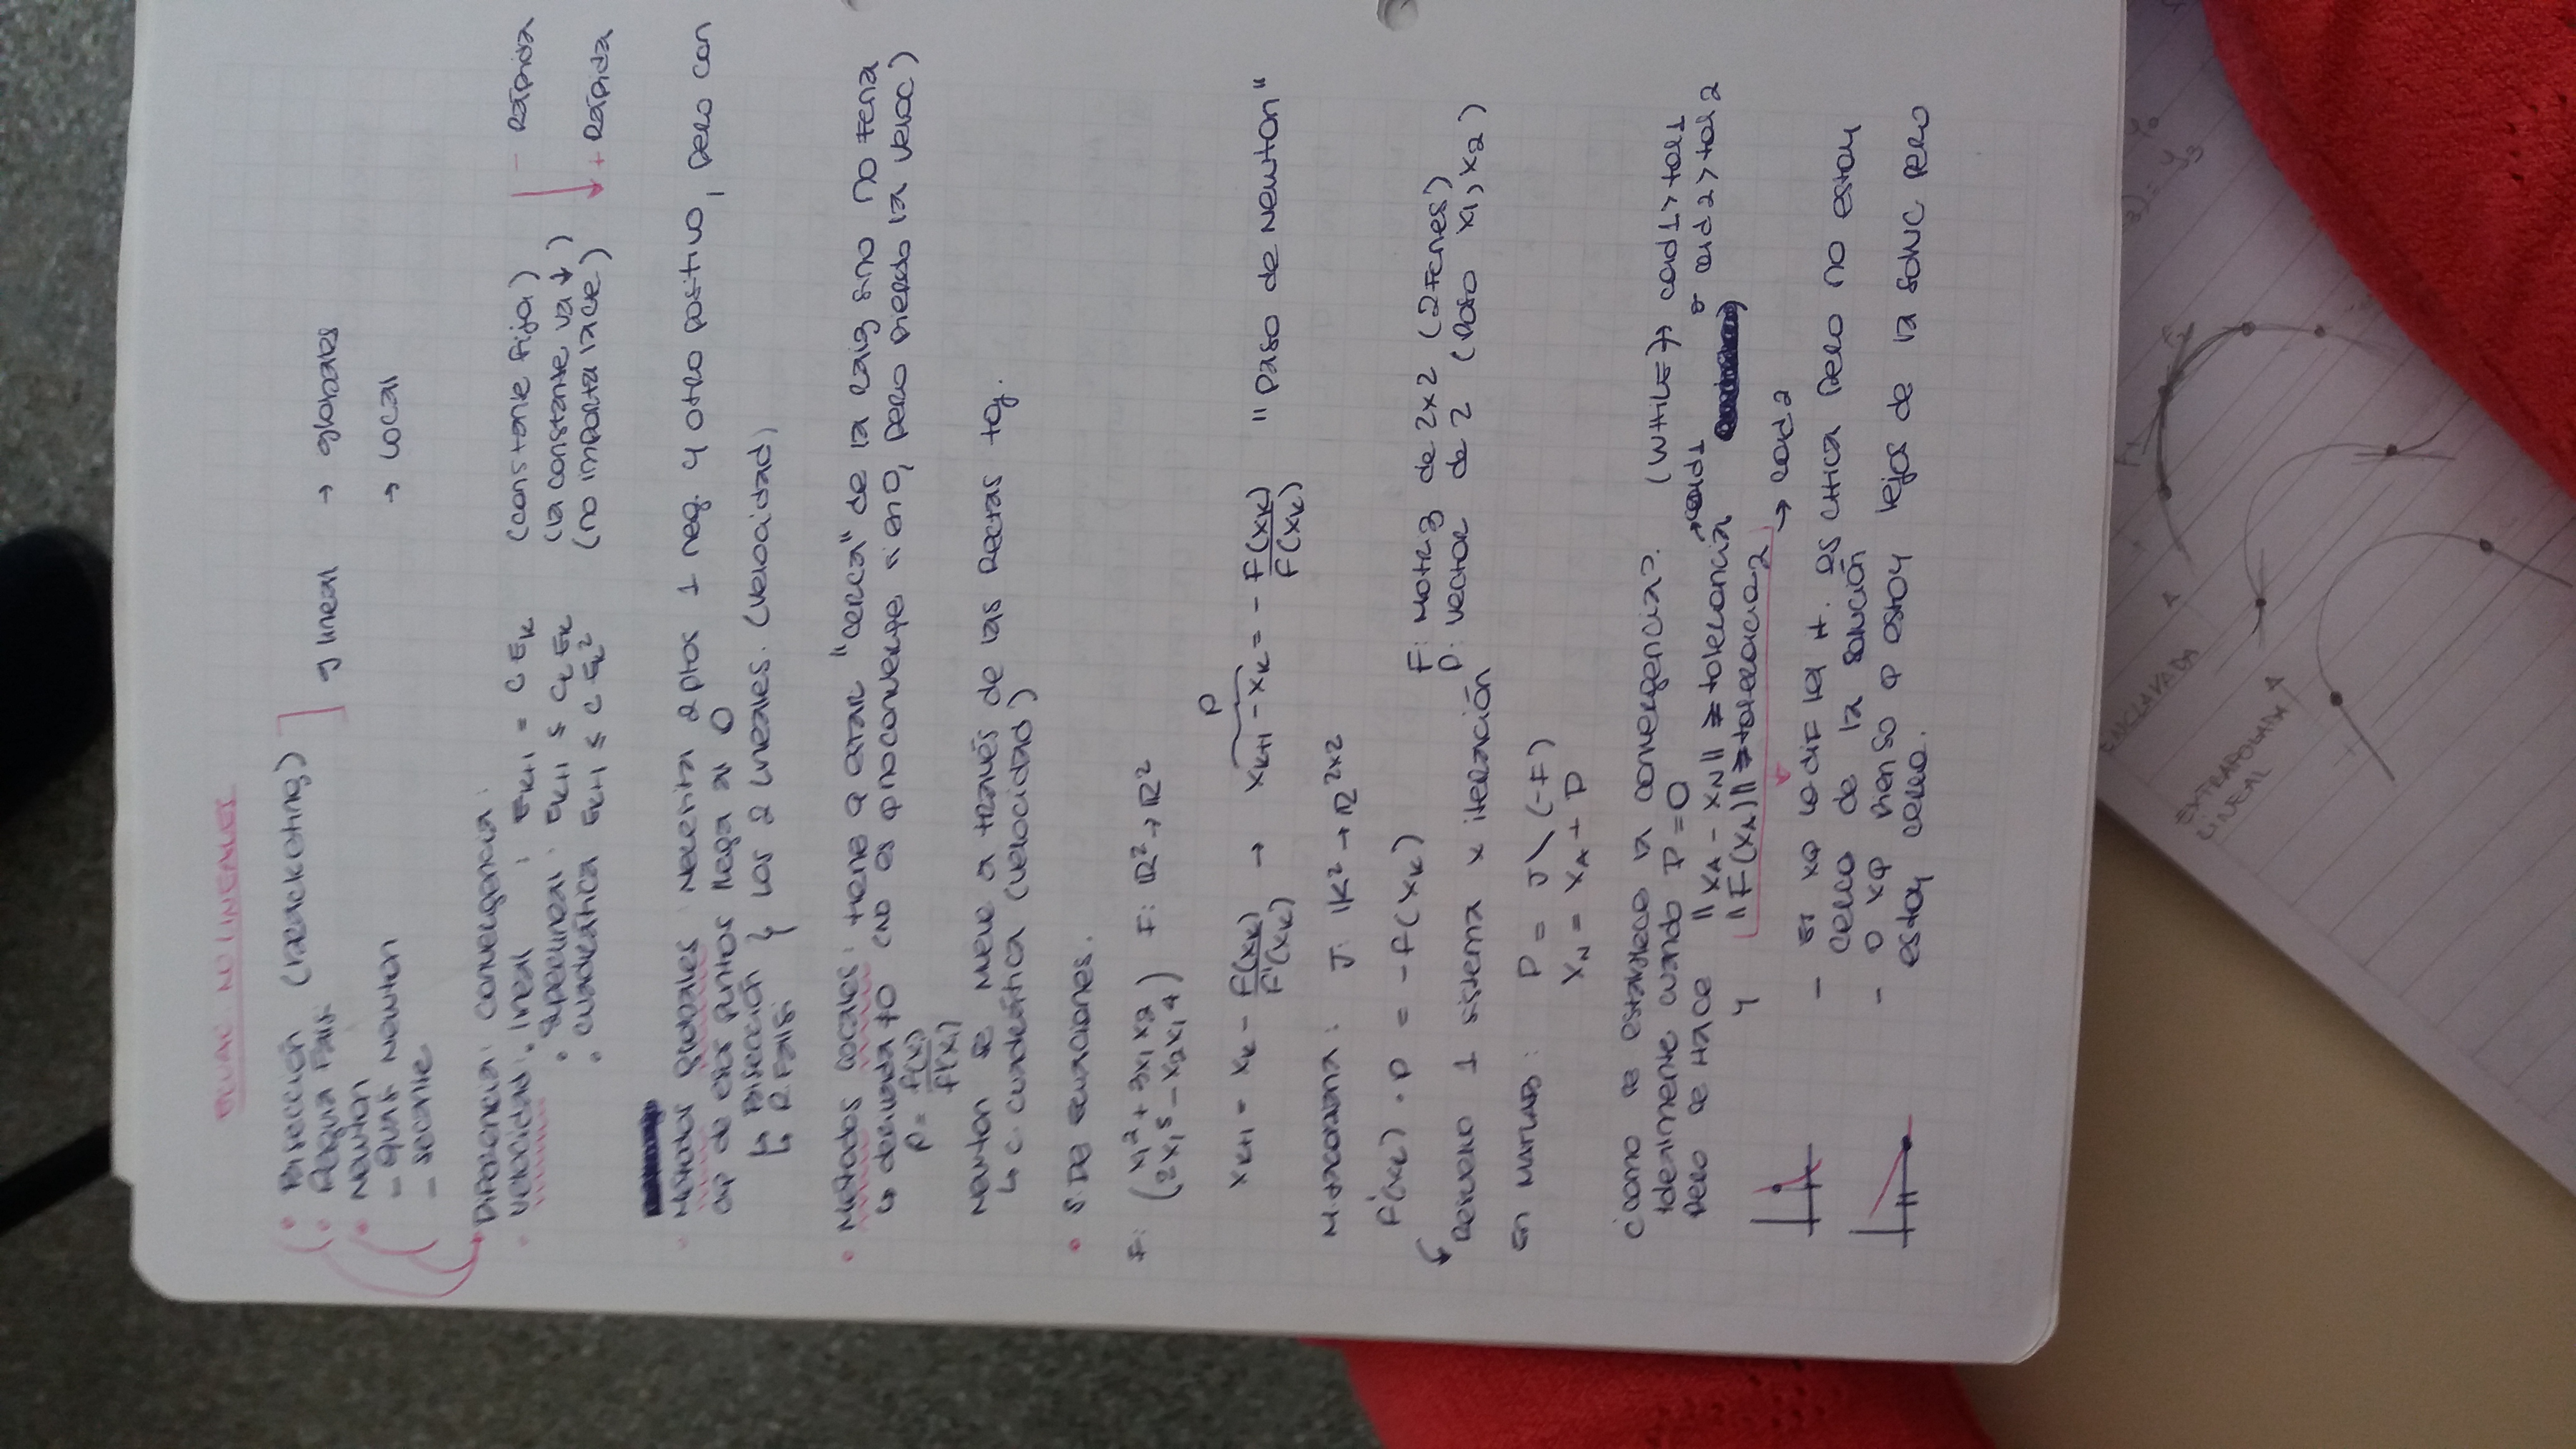 ECUAC. NO LINEALES
• Bisección (bracketing)
• Regula Falsi
} lineal → globales
• Newton
- Quasi Newton → local
- secante
Diferencia: convergencia:
• velocidad: • lineal : EK+1 = C EK (constante fija) - Rápida
• superlineal: EK+1 ≤ CK EK (la constante va ↓)
• cuadrática EK+1 ≤ C EK² (no importa la cte) + Rápida
• Métodos globales necesita 2 ptos 1 neg. y otro positivo, pero con
de esos puntos llega al 0
↳ Bisección
↳ R. Falsi
} Los 2 lineales. (velocidad)
• Métodos locales: tiene q estar "cerca" de la raiz sino no
↳ derivada ≠0 (no es q no converge si en 0, pero pierdo la veloc)
P = f(x)/f'(x)
Newton se mueve a través de las rectas tg.
↳ C. cuadrática (velocidad)
• S. De Ecuaciones.
F: (x1² + 3x1x2
2x1⁵ - x2x1⁴) F: ℝ² → ℝ²
P
XK+1 = XK - F(XK)/F'(XK) → XK+1 - XK = - F(XK)/F(XK) "Paso de Newton"
M. Jacobiana: J: ℝ² → ℝ2x2
F'(XK) . P = -F(XK)
F: Matriz de 2x2 (2 Fcnes)
P: vector de 2 (Paso x1, x2)
↳ Resuelvo 1 sistema x iteración
En MATLAB: P = J\(-F)
XN = XA + P
¿Como se establece la convergencia?. (WHILE) → cond1 > tol1
Idealmente cuando P=0
o cond2 > tol2
Pero se Hace ||XA - XN|| ≥ tolerancia → cond1
y ||F(XA)|| ≥ tolerancia2 → cond2
- Es xq la dif es chica pero no estoy
cerca de la solución
- o xq pienso q estoy lejos de la soluc pero
estoy cerca.
ENCLAVADA
A
F1
F2
EXTRAPOLADA
LINEAL
A